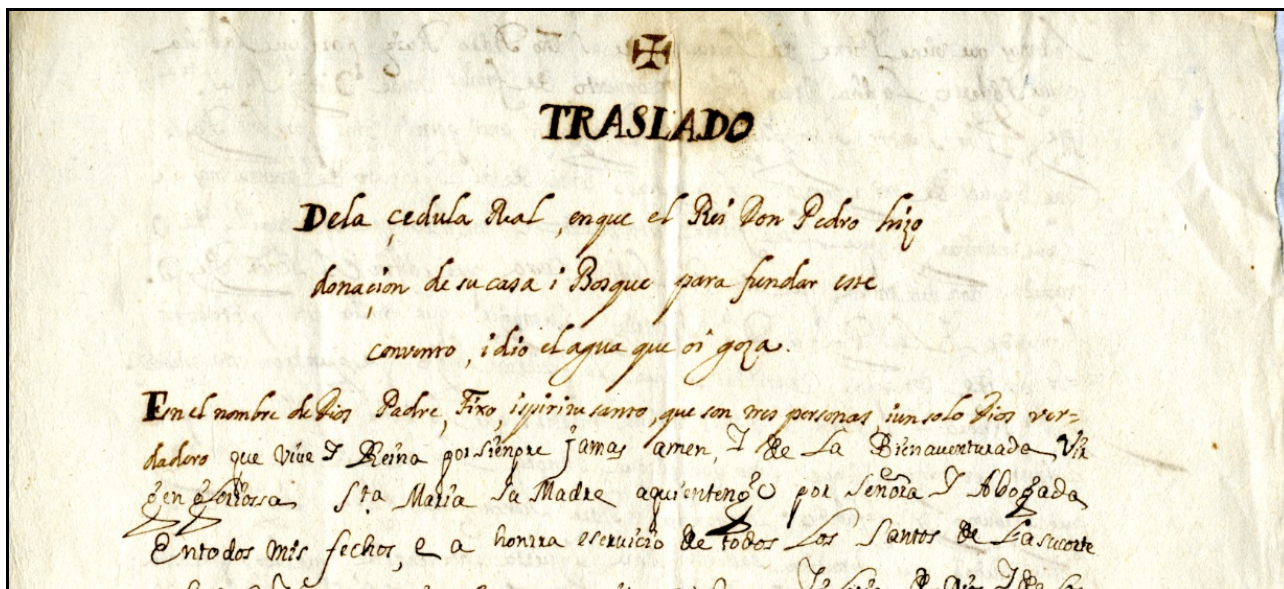 ✠
TRASLADO
Dela çedula Real, enque el Rei Don Pedro hizo
donaçion de su casa i Bosque para fundar este
convento, i dio el agua que oi goza.
En el nombre de Dios Padre, Fixo, ispiritu santo, que son tres personas, iun solo Dios ver-
dadero que vive I Reina por sienpre jamas amen, I de La Bienauenturada Vir
gen gloriossa Sta Maria su Madre aquientengo por Señora I Abogada
Entodos mis fechos, e a honrra eseruicio de todos Los Santos de Lasucorte